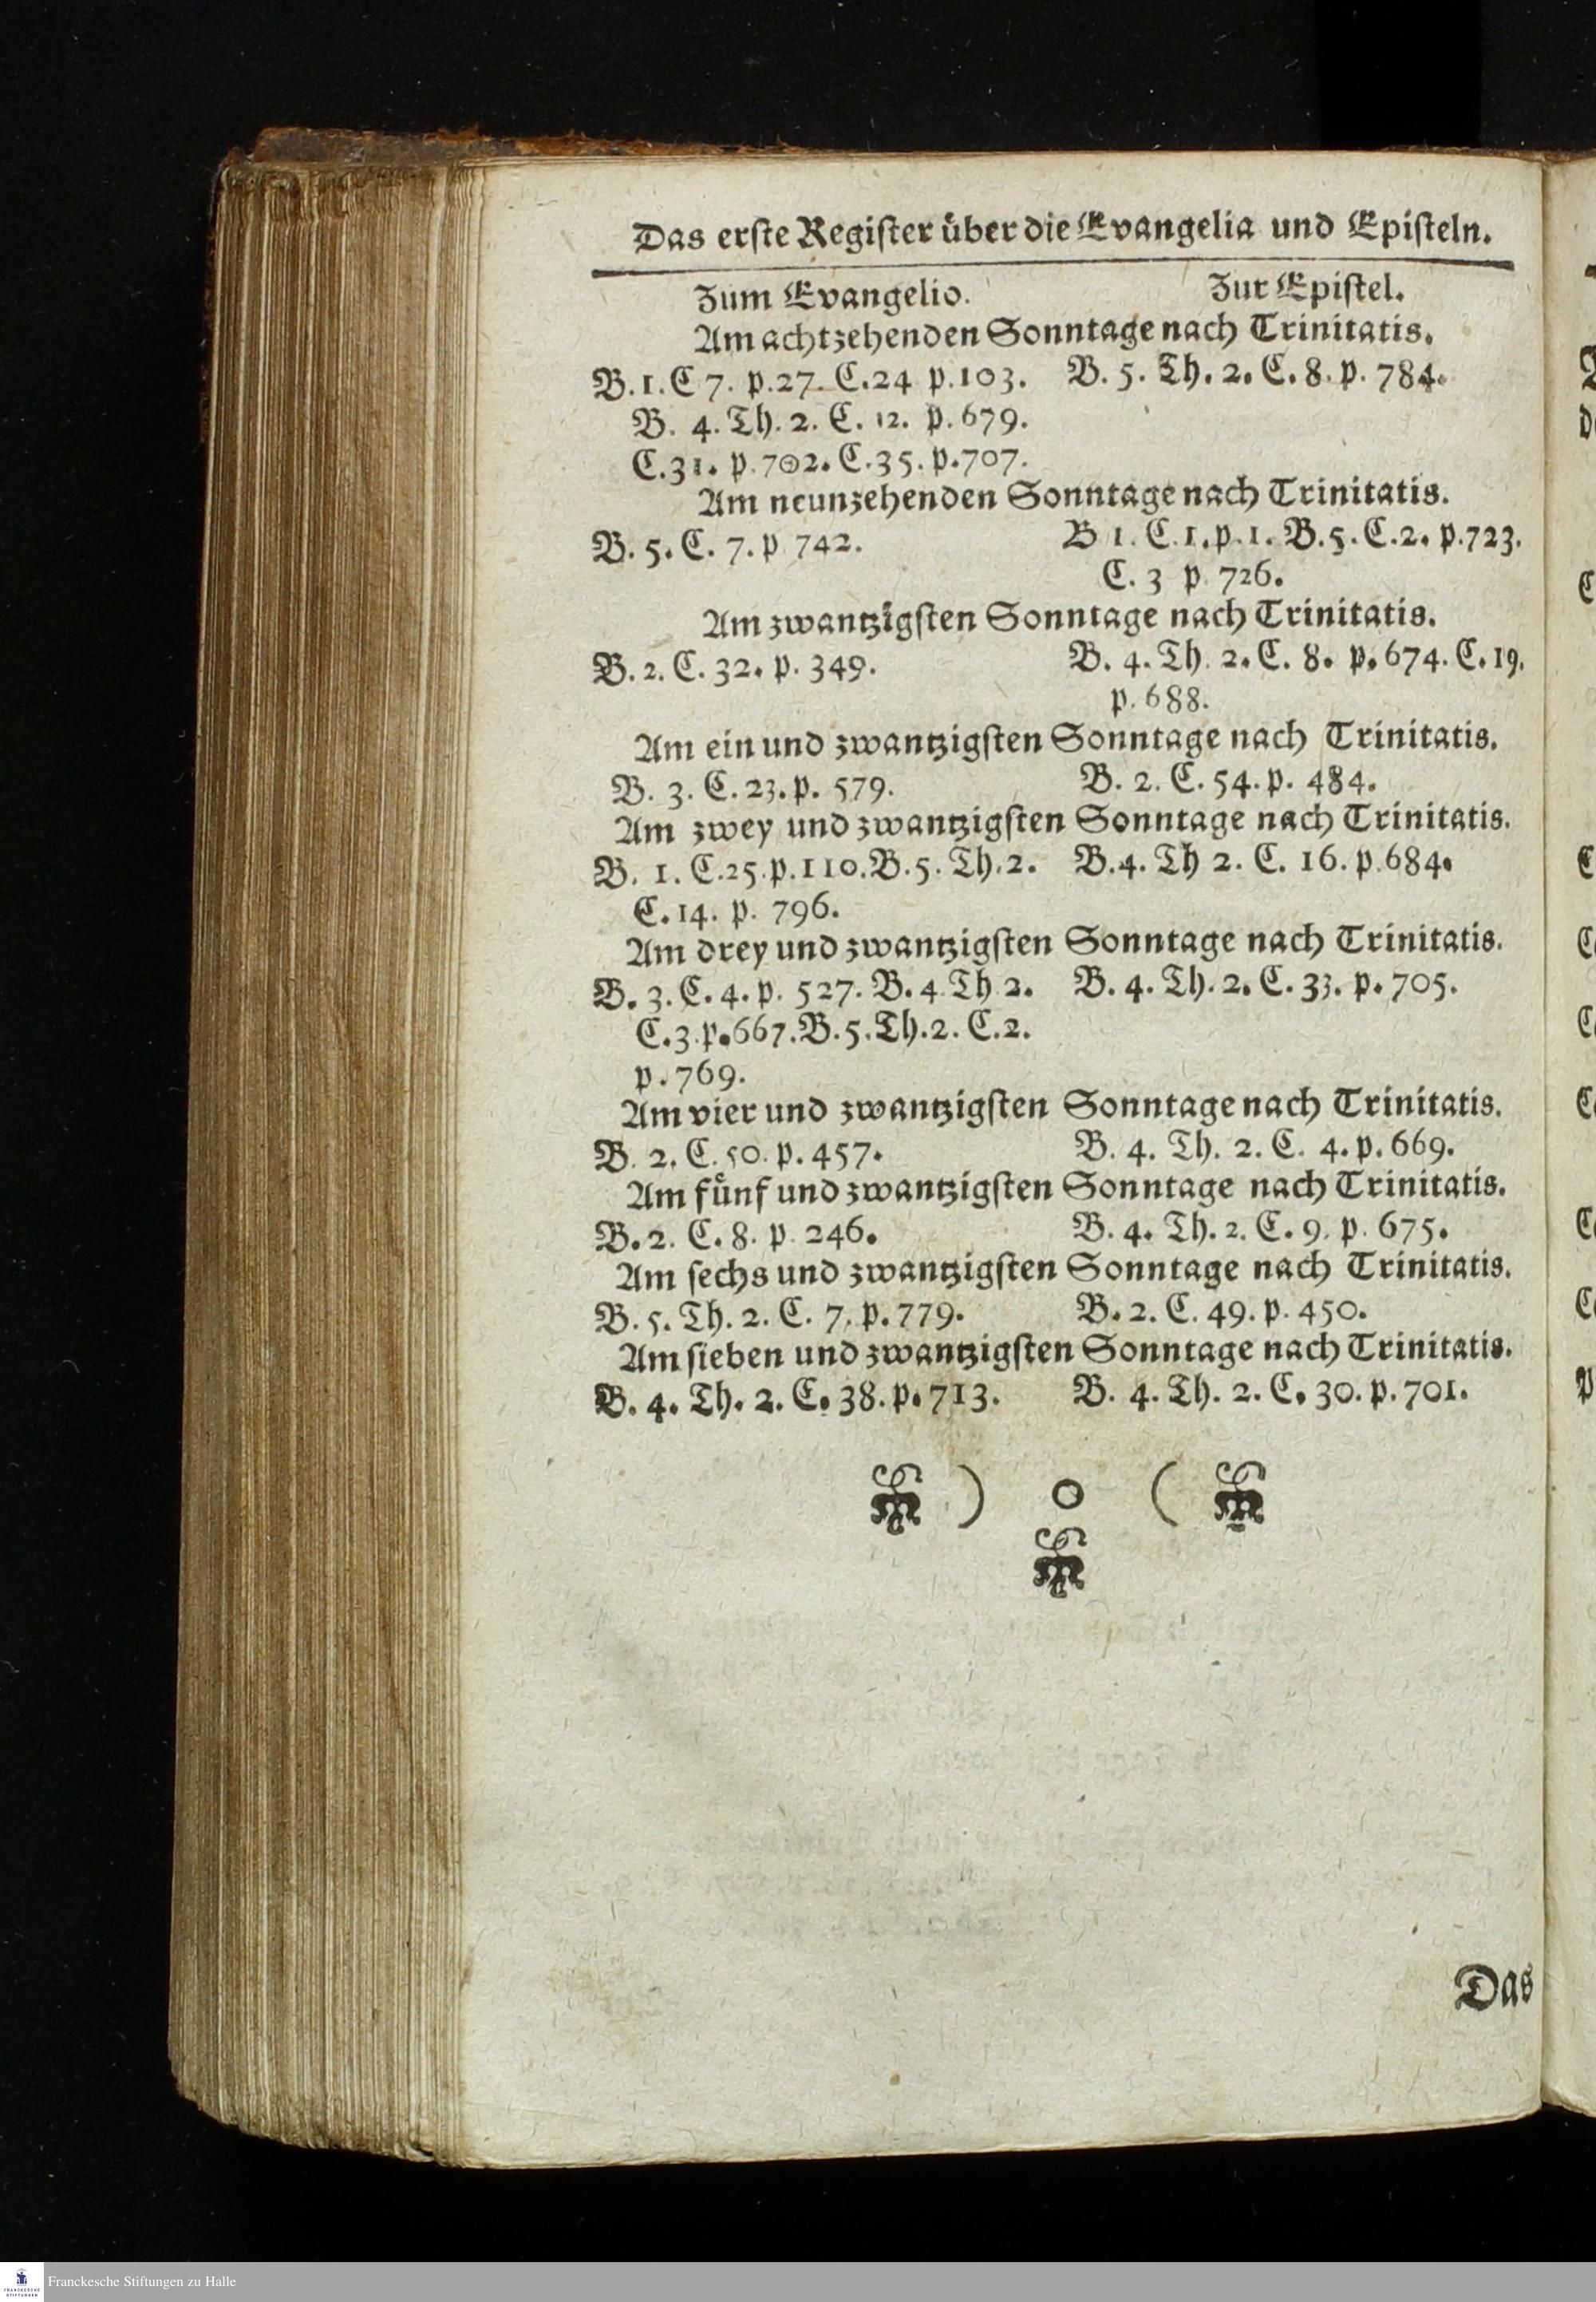 Das erste Register über die Evangelia und Episteln.
Zum Evangelio. Zur Epistel.
Am achtzehenden Sonntage nach Trinitatis.
B. 1. C 7. p. 27. C. 24 p. 103. B. 5. Th. 2. C. 8. p. 784.
B. 4. Th. 2. C. 12. p. 679.
C. 31. p. 702. C. 35. p. 707.
Am neunzehenden Sonntage nach Trinitatis.
B. 5. C. 7. p 742. B 1. C. 1. p. 1. B. 5. C. 2. p. 723.
C. 3 p. 726.
Am zwantzigsten Sonntage nach Trinitatis.
B. 2. C. 32. p. 349. B. 4. Th. 2. C. 8. p. 674. C. 19.
p. 688.
Am ein und zwantzigsten Sonntage nach Trinitatis.
B. 3. C. 23. p. 579. B. 2. C. 54. p. 484.
Am zwey und zwantzigsten Sonntage nach Trinitatis.
B. 1. C. 25. p. 110. B. 5. Th. 2. B. 4. Th 2. C. 16. p. 684.
C. 14. p. 796.
Am drey und zwantzigsten Sonntage nach Trinitatis.
B. 3. C. 4. p. 527. B. 4. Th 2. B. 4. Th. 2. C. 33. p. 705.
C. 3. p. 667. B. 5. Th. 2. C. 2.
p. 769.
Am vier und zwantzigsten Sonntage nach Trinitatis.
B. 2. C. 50. p. 457. B. 4. Th. 2. C. 4. p. 669.
Am fünf und zwantzigsten Sonntage nach Trinitatis.
B. 2. C. 8. p. 246. B. 4. Th. 2. C. 9. p. 675.
Am sechs und zwantzigsten Sonntage nach Trinitatis.
B. 5. Th. 2. C. 7. p. 779. B. 2. C. 49. p. 450.
Am sieben und zwantzigsten Sonntage nach Trinitatis.
B. 4. Th. 2. C. 38. p. 713. B. 4. Th. 2. C. 30. p. 701.
) o (
Das
FRANCKESCHE STIFTUNGEN
Franckesche Stiftungen zu Halle